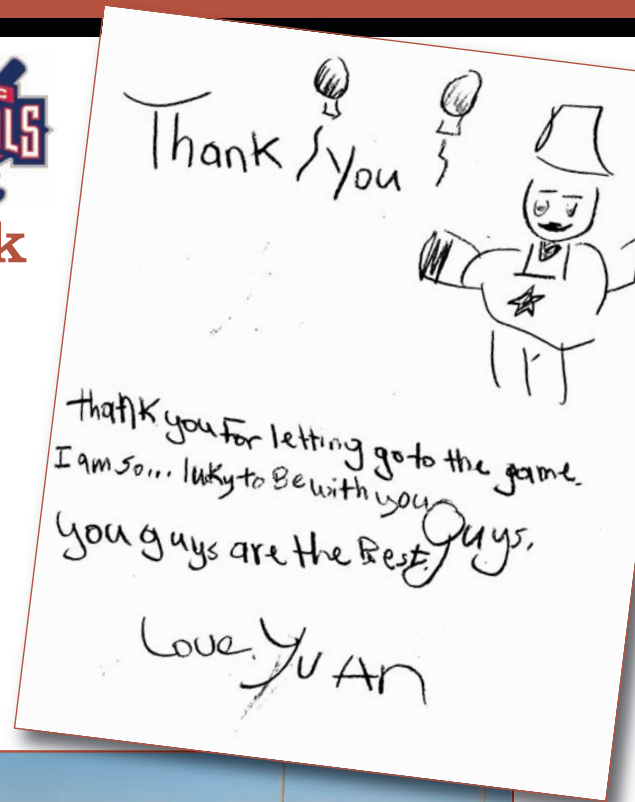 C
LS
k
Thank You
thank you For letting go to the game.
I am so... luky to Be with you
Guys.
you guys are the Best.
Love. Yu An